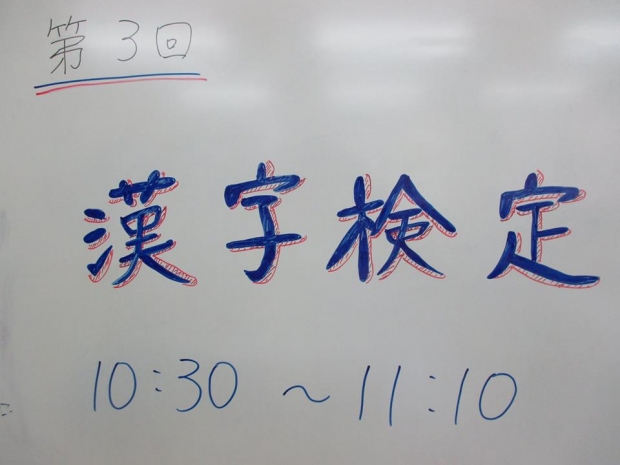 第3回
漢字検定
10:30 ~ 11:10